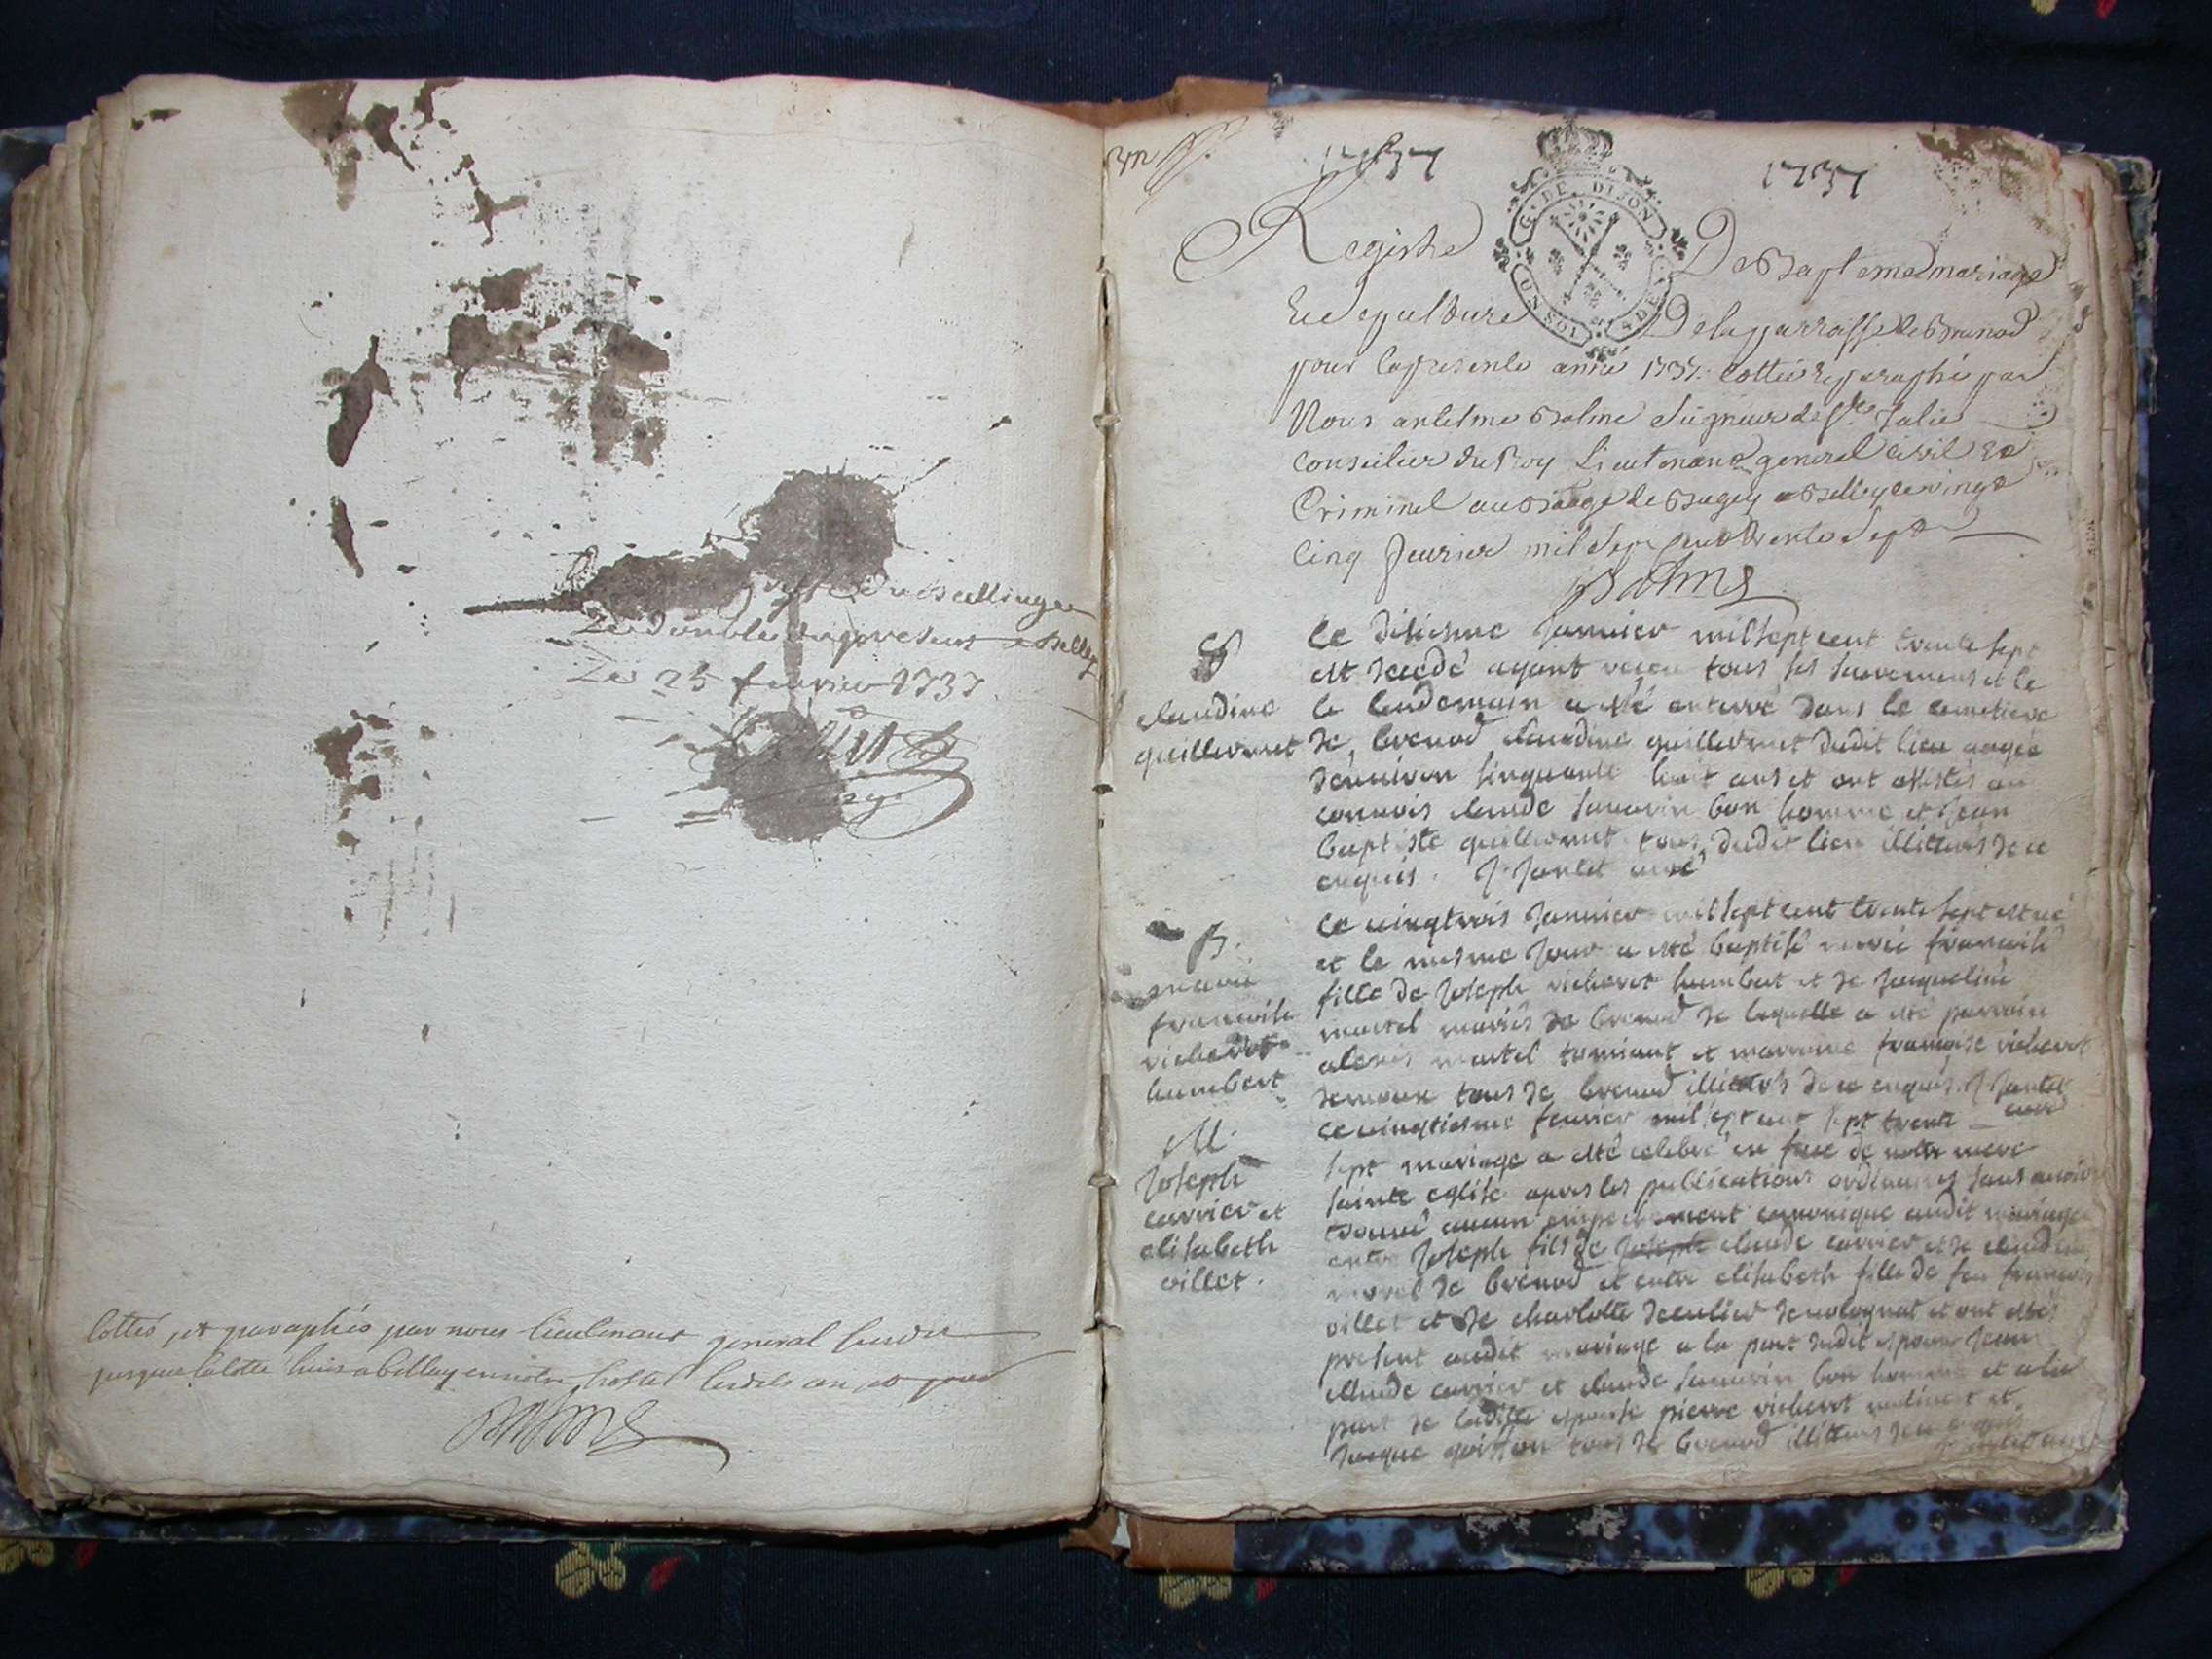 du scellage
Le double du present a belley
Le 25 feurier 1737
Cottés, et paraphés par nous lieutenant general susdit
jusque la cotte huis a belley en notre hostel lesdits an et jour
Balme
1737
1737
G. DE DIJON
UN SOL
Registre De Baptemes mariage
Et sepulture De la parroisse de Brenod
pour la presente anné 1737. Cotté et paraphé par
Nous anthelme Balme Seigneur de Ste. Julie
Conseiller du Roy Lieutenant general Civil et
Criminel au Bailliage de Bugey a Belley ce vingt
Cinq feurier mil sept Cent trente sept
Balme
S
claudine
guillermet
Le disiesme Januier mil sept cent trente sept
est decedé ayant receu tous ses sacremens et le
le lendemain a esté enterré dans le cemetiere
de brenod claudine guillermet dudit lieu aagée
denuiron sinquante huit ans et ont assistés au
conuois claude sauarin bon homme et Jean
baptiste guillermet tous dudit lieu illitterés de ce
enquis. J. Jantet curé
B.
marie
francoise
richerot
humbert
Le uingtrois Januier mil sept cent trente sept est né
et le mesme Jour a esté baptisé marie francoise
fille de Joseph richerot humbert et de Jacqueline
martel mariés de brenod de laquelle a esté parrain
alexis martel et marraine françoise richerot
tous de brenod illitterés de ce enquis. J Jantet
curé
M.
Joseph
carrier et
elisabeth
villet.
Le uingtiesme feurier mil sept cent sept trente
sept mariage a esté celebré en face de notre mere
sainte eglise apres les publications ordinaires sans auoir
trouué aucun empechement canonique audit mariage
entre Joseph fils de Joseph claude carrier et de claudine
morel de brenod et entre elisabeth fille de feu francois
villet et de charlotte et ont estés
present audit mariage a la part dudit epoux Jean
claude carrier et claude sauarin bon homme et a la
part de laditte epouse pierre richerot et
Jacque goiffon tous de brenod illitterés de ce enquis
J Jantet curé